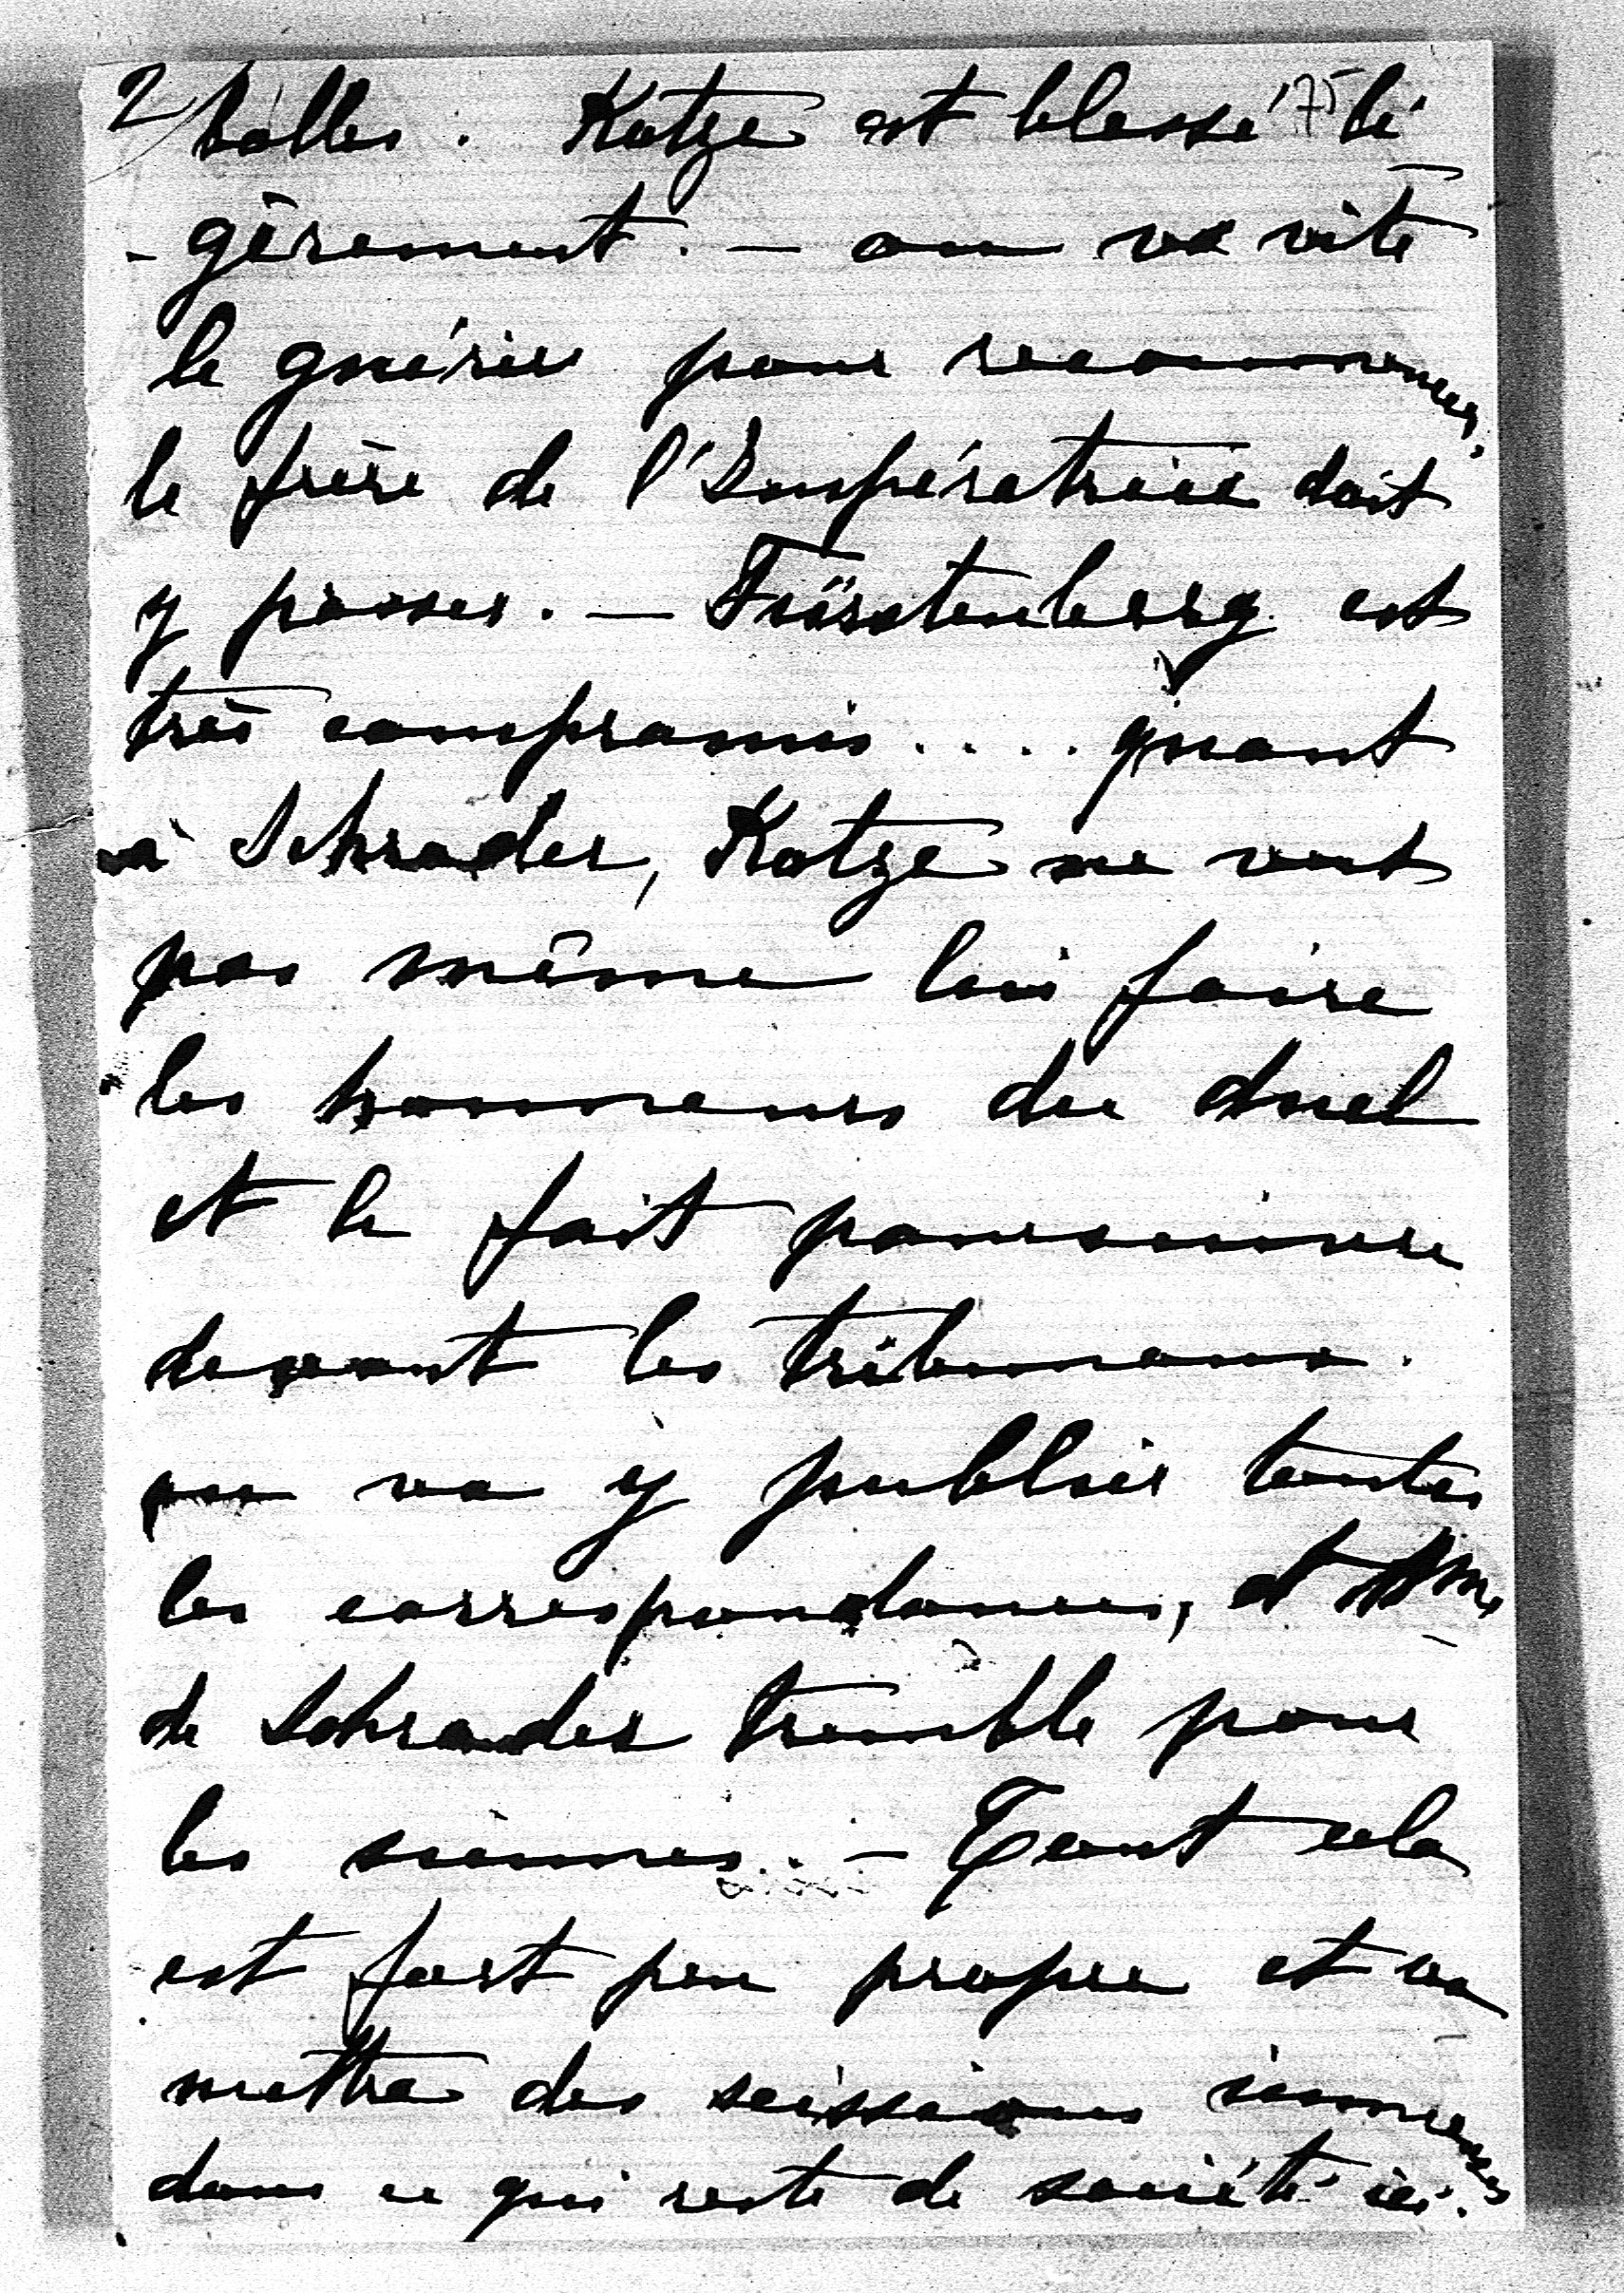 2 balles. Kotze est blessé 75 lé
-gèrement. — on va vite
le guérir pour recommencer.
le frère de l'Impératrice doit
y passer. — Fürstenberg est
très compromis.... quant
à Schrader, Kotze ne veut
pas même lui faire
les honneurs du duel
et le fait poursuivre
devant les tribunaux.
on va y publier toutes
les correspondances, et Mme
de Schrader tremble pour
les siennes. — Tout cela
est fort peu propre et va
mettre des scissions immenses
dans ce qui reste de société ici.